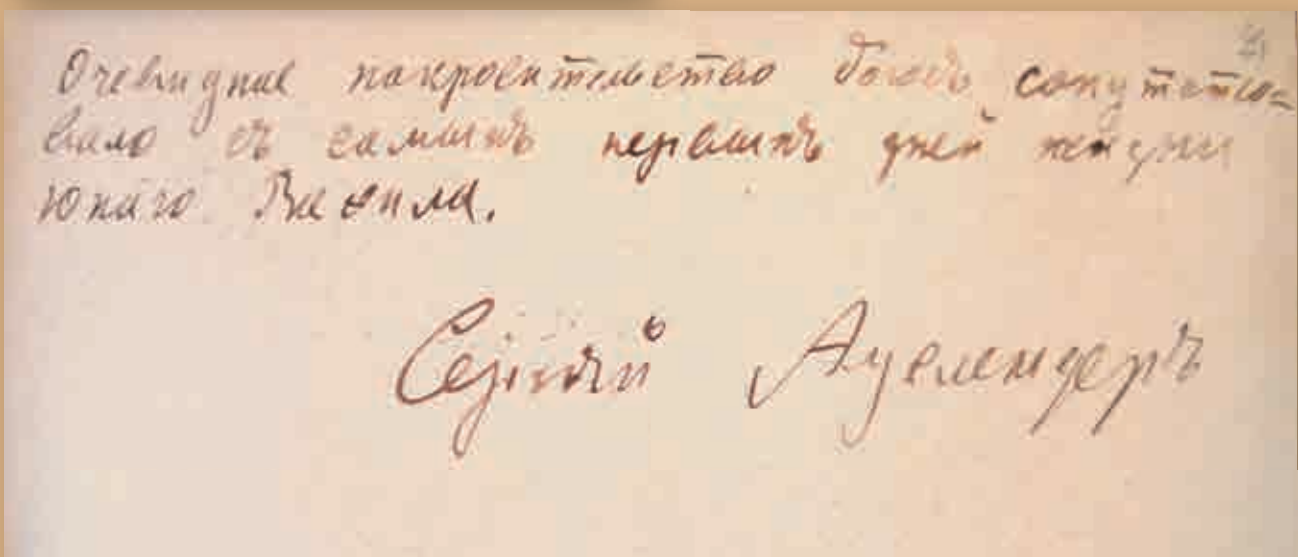 Очевидное покровительство боговъ сопутство-
вало съ самыхъ первыхъ дней жизни
юнаго Вафила.
Сергѣй Ауслендеръ